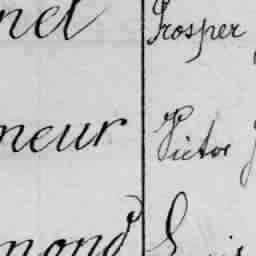 nel Prosper
neur Victor
mond